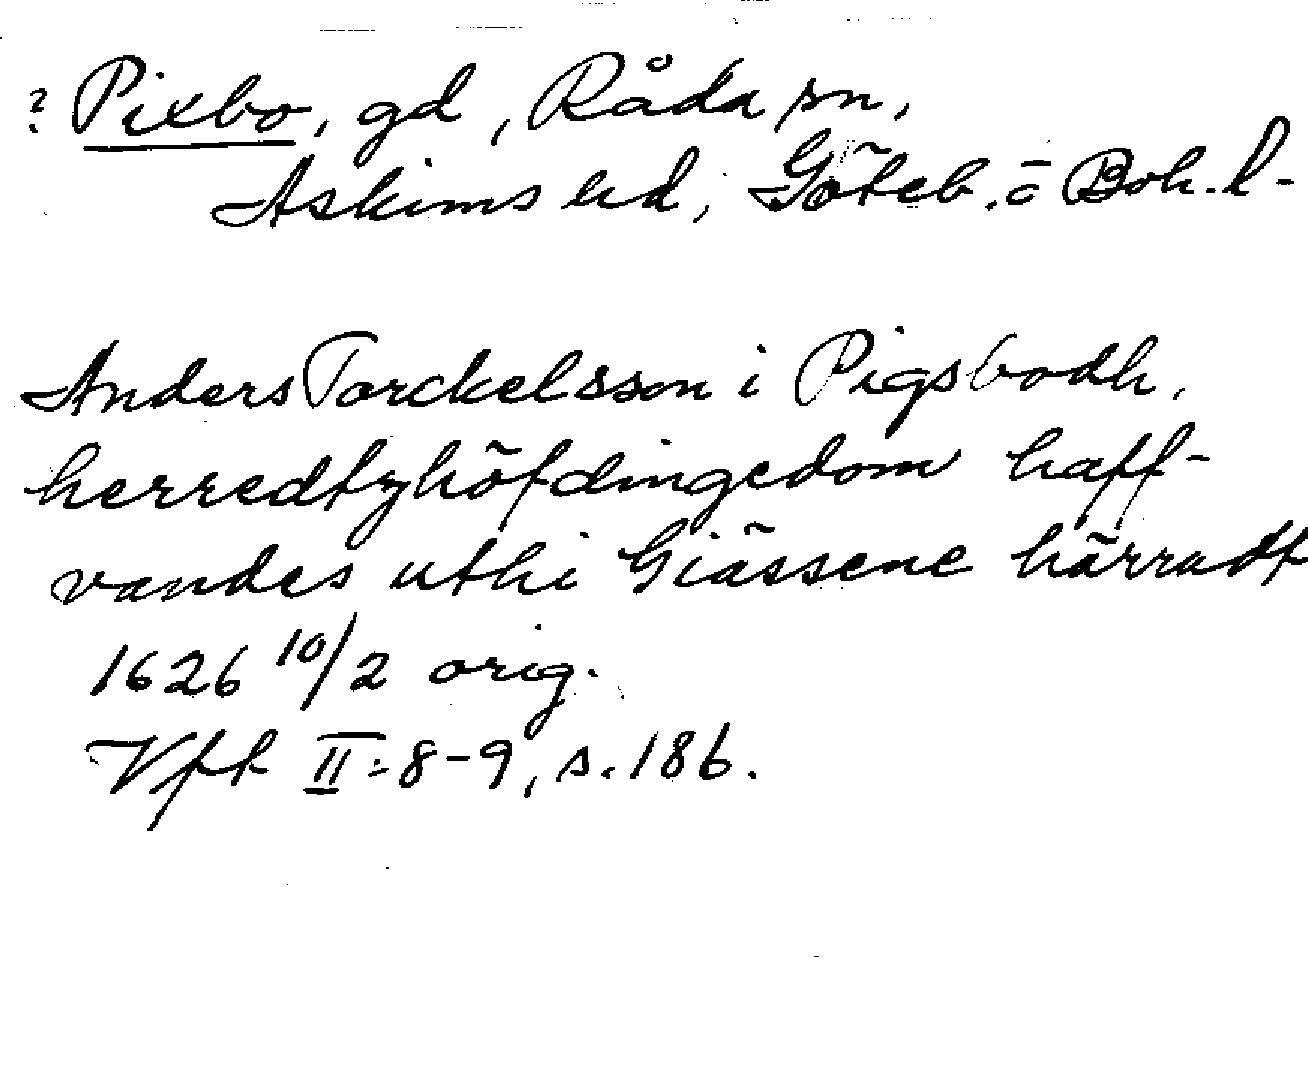 ? Pixbo, gd, Råda sn,
Askims hd, Göteb. o Boh. l-
Anders Torckelsson i Pigsbodh,
herredtzhöfdingedom haff-
vandes uthi Giässene härradt
1626 10/2 orig.
Vfk II:8-9, s. 186.